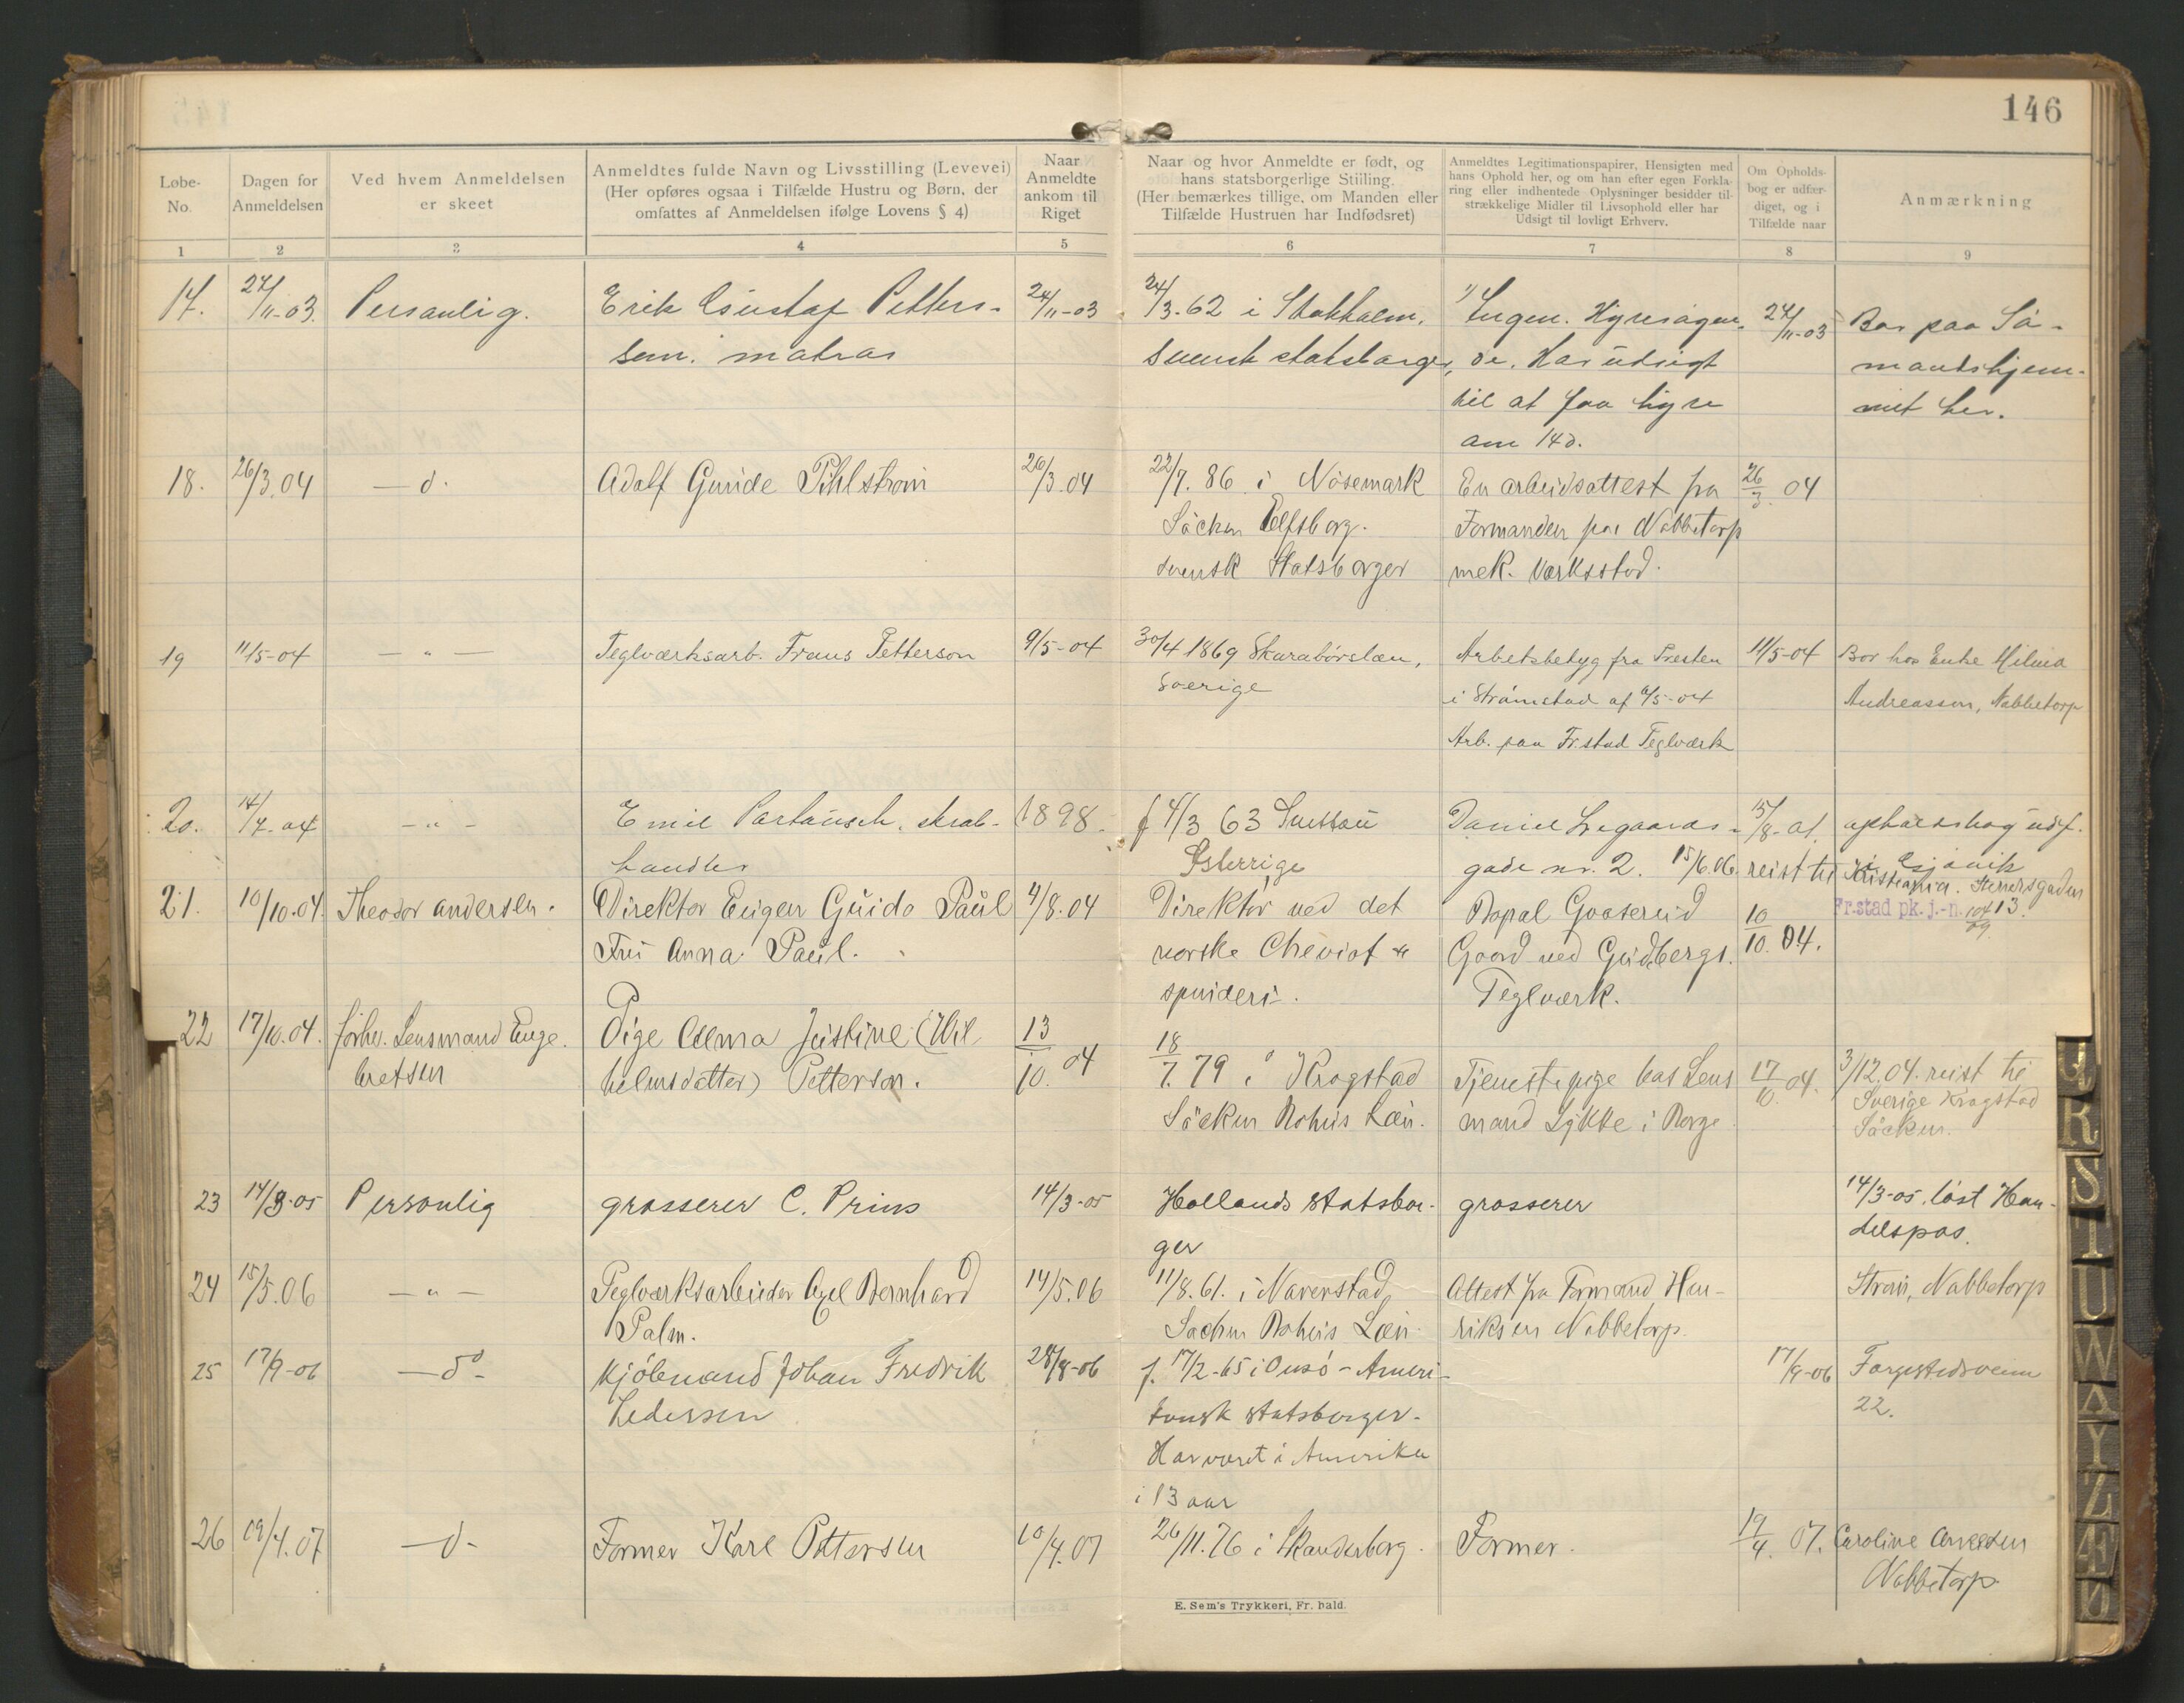 146
Løbe-
No.
Dagen for
Anmeldelsen
Ved hvem Anmeldelsen
er skeet
Anmeldtes fulde Navn og Livsstilling (Levevei)
(Her opføres ogsaa i Tilfælde Hustru og Børn, der
omfattes af Anmeldelsen ifølge Lovens § 4)
Naar
Anmeldte
ankom til
Riget
Naar og hvor Anmeldte er født, og
hans statsborgerlige Stiiling.
(Her bemærkes tillige, om Manden eller
Tilfælde Hustruen har Indfødsret)
Anmeldtes Legitimationspapirer, Hensigten med
hans Ophold her, og om han efter egen Forkla-
ring eller indhentede Oplysninger besidder til-
strækkelige Midler til Livsophold eller har
Udsigt til lovligt Erhverv.
Om Opholds-
bog er udfær-
diget, og i
Tilfælde naar
Anmærkning
1 2 3 4 5 6 7 8 9
17. 24/11-03. Personlig. Erik Gustaf Petters- 24/11-03 24/3-62 i Stokholm, Ingen. Hyresøgen- 24/11-03 Bor paa Sø-
sen. matros svensk statsborger, de. Har udsigt mandshjem-
til at faa hyre met her.
om 14 d.
18. 26/3.04 — d. Adolf Gunde Pihlstrøm 26/3.04 22/7.86 i Nösemark En arbeidsattest fra 26/3.04
Säcken Elfsborg. Formanden paa Nabbetorp
svensk Statsborger mek. Værksted.
19 11/5-04 — „ — Teglværksarb. Frans Petterson 9/5-04 30/4 1869 Skarabórslæn, Arbetsbetyg fra Presten 11/5-04 Bor hos Enke Hilma
Sverige i Strømstad af 6/5-04 Andreassen, Nabbetorp
Arb. paa Fr.stad Teglværk
20. 14/7.04 — „ — Emil Partausch, skrab- 1898. f 4/3 63 Daniel Leegaards- 15/8-01. opholdsbog udf.
handler Østerrige gade nr. 2. 15/6.06. reist til i Gjøvik
Kristiania. Stenersgaden
21. 10/10.04. Theodor Andersen. Direktor Eugen Guido Paul 4/8.04 Direktør ved det Bopal Gaasereid 10/10.04. Fr.stad pk. j.-n. 13.
Fru Anna Paul. norske Cheviot Gaard ved Gudbergs.
spinderi. Teglværk.
22 17/10.04. forhv. Lensmand Enge- Pige Alma Justine (Wil 13/10.04 18/7.79 i Krogstad Tjenestepige hos Lens 17/10.04. 3/12.04. reist til
bretsen helmsdatter) Petterson. Säcken Bohus Læn. mand Lykke i Borge Sverige Krogstad
Säcken.
23 14/3-05 Personlig grosserer C. Prins 14/3-05 Hollands statsbor- grosserer 14/3-05. løst Han-
ger delspas.
24 15/5.06 — „ — Teglværksarbeider Axel Bernhard 14/5.06 11/8.61. i Naverstad Attest fra Formand Hen- Strøm, Nabbetorp
Palm. Sachen Bohus Læn. riksen Nabbetorp.
25 17/9-06 — do - Kjøbmand Johan Fredrik 28/8-06 f. 17/2-65 i Onsø - Ameri- 17/9-06 Torpstedveien
Pedersen kansk statsborger. 22.
Har været i Amerika
i 13 aar
26 19/4.07 — d - Former Karl Pettersen 10/4.07 26/11.76 i Skanderborg. Former. 19/4.07. Caroline
Nabbetorp
E. Sem's Trykkeri, Fr. hald.
Q
R
S
T
U
W
Y
Z
Æ
Ø